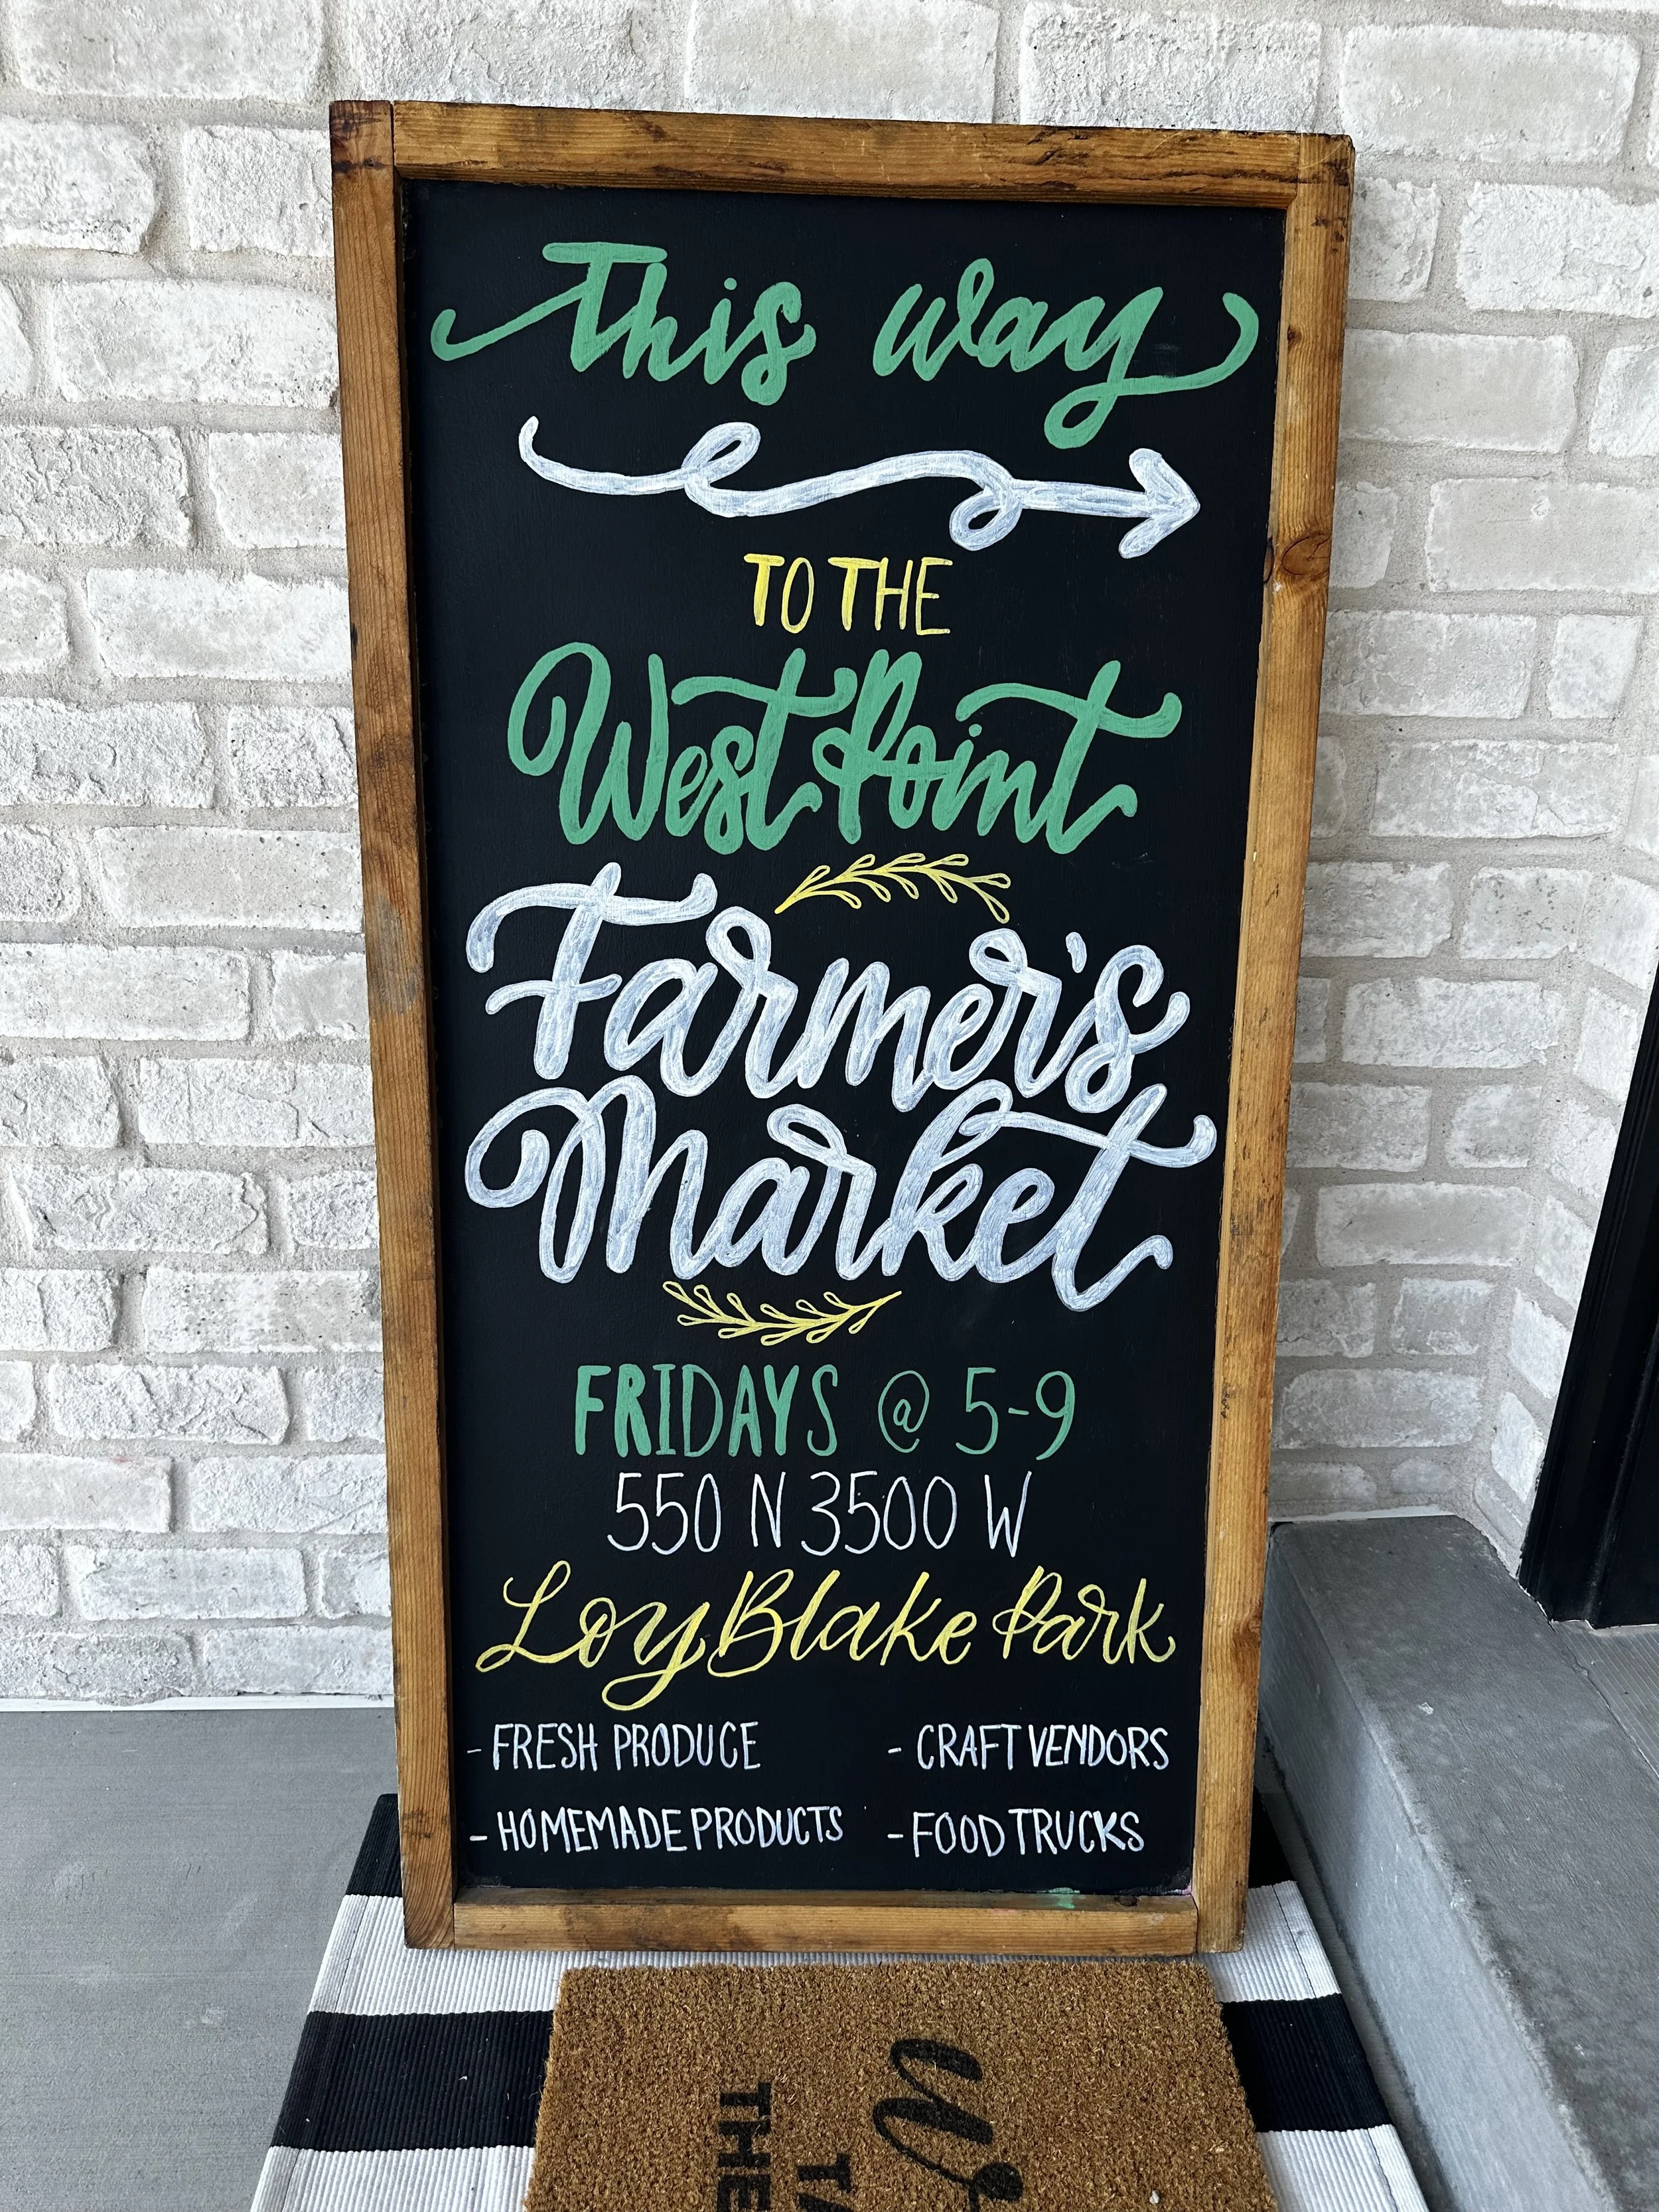 This way
TO THE
West Point
Farmer's
Market
FRIDAYS @ 5-9
550 N 3500 W
Loy Blake Park
- FRESH PRODUCE - CRAFT VENDORS
- HOMEMADE PRODUCTS - FOOD TRUCKS
THE